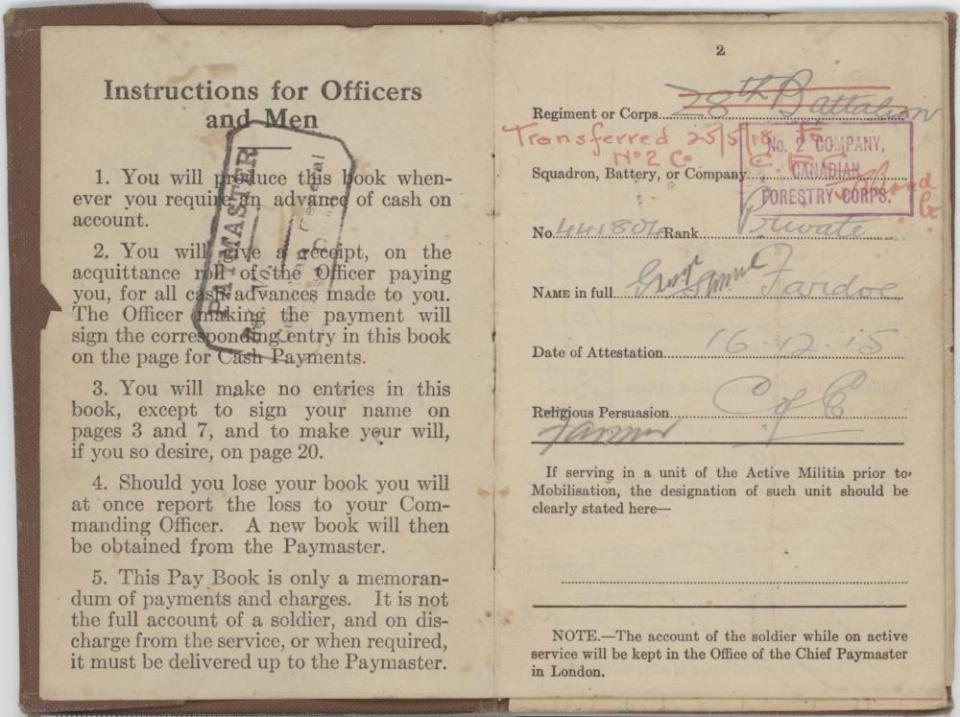 Instructions for Officers
and Men
1. You will produce this book when-
ever you require an advance of cash on
account.
2. You will give a receipt, on the
acquittance roll of the Officer paying
you, for all cash advances made to you.
The Officer making the payment will
sign the corresponding entry in this book
on the page for Cash Payments.
3. You will make no entries in this
book, except to sign your name on
pages 3 and 7, and to make your will,
if you so desire, on page 20.
4. Should you lose your book you will
at once report the loss to your Com-
manding Officer. A new book will then
be obtained from the Paymaster.
5. This Pay Book is only a memoran-
dum of payments and charges. It is not
the full account of a soldier, and on dis-
charge from the service, or when required,
it must be delivered up to the Paymaster.
PAYMASTER
2
Regiment or Corps 28th Battalion
Transferred 25/5/18 To
No 2 Co C.F.C.
No. 2 COMPANY,
CANADIAN
FORESTRY CORPS.
Squadron, Battery, or Company
No. 441804 Rank Private
NAME in full George Samuel Fardoe
Date of Attestation 16.12.15
Religious Persuasion C of E
Farmer
If serving in a unit of the Active Militia prior to
Mobilisation, the designation of such unit should be
clearly stated here—
NOTE.—The account of the soldier while on active
service will be kept in the Office of the Chief Paymaster
in London.